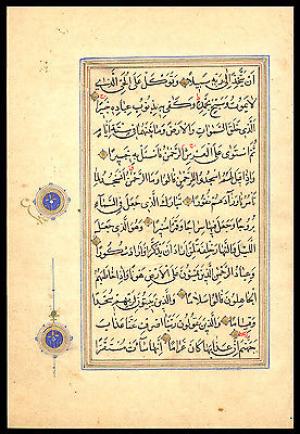 اَنْ يَتَّخِذَ اِلٰى رَبِّهِ سَبِيلًا وَتَوَكَّلْ عَلَى الْحَيِّ الَّذِى
لَا يَمُوتُ وَسَبِّحْ بِحَمْدِهِ وَكَفٰى بِهِ بِذُنُوبِ عِبَادِهِ خَبِيرًا
الَّذِى خَلَقَ السَّمٰوَاتِ وَالْاَرْضَ وَمَا بَيْنَهُمَا فِى سِتَّةِ اَيَّامٍ
ثُمَّ اسْتَوٰى عَلَى الْعَرْشِ الرَّحْمٰنُ فَاسْئَلْ بِهِ خَبِيرًا
وَاِذَا قِيلَ لَهُمُ اسْجُدُوا لِلرَّحْمٰنِ قَالُوا وَمَا الرَّحْمٰنُ اَنَسْجُدُ لِمَا
تَاْمُرُنَا وَزَادَهُمْ نُفُورًا تَبَارَكَ الَّذِى جَعَلَ فِى السَّمَاءِ
بُرُوجًا وَجَعَلَ فِيهَا سِرَاجًا وَقَمَرًا مُنِيرًا وَهُوَ الَّذِى جَعَلَ
اللَّيْلَ وَالنَّهَارَ خِلْفَةً لِمَنْ اَرَادَ اَنْ يَذَّكَّرَ اَوْ اَرَادَ شُكُورًا
وَعِبَادُ الرَّحْمٰنِ الَّذِينَ يَمْشُونَ عَلَى الْاَرْضِ هَوْنًا وَاِذَا خَاطَبَهُمُ
الْجَاهِلُونَ قَالُوا سَلَامًا وَالَّذِينَ يَبِيتُونَ لِرَبِّهِمْ سُجَّدًا
وَقِيَامًا وَالَّذِينَ يَقُولُونَ رَبَّنَا اصْرِفْ عَنَّا عَذَابَ
جَهَنَّمَ اِنَّ عَذَابَهَا كَانَ غَرَامًا اِنَّهَا سَاءَتْ مُسْتَقَرًّا